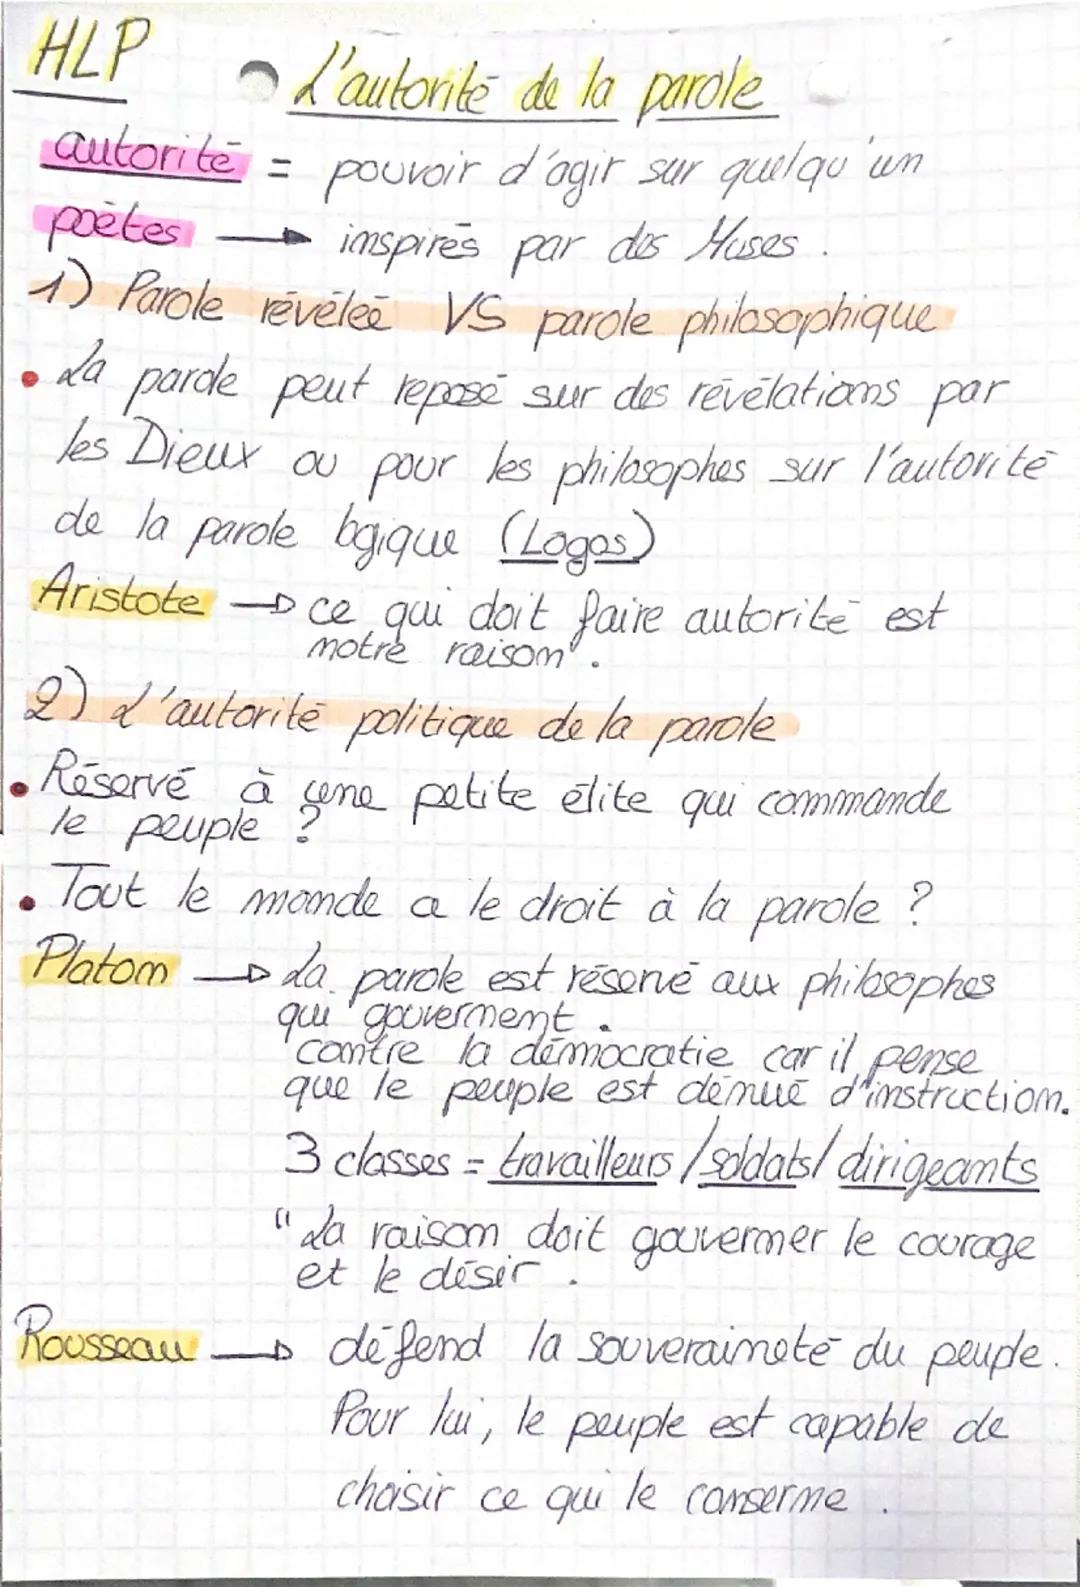 HLP
L'autorité de la parole
autorité = pouvoir d'agir sur quelqu'un
poètes → inspirés par des Muses.
1) Parole révélée VS parole philosophique
• La parole peut reposé sur des révélations par
les Dieux ou pour les philosophes sur l'autorité
de la parole logique (Logos)
Aristote → ce qui doit faire autorité est
notre raison".
2) L'autorité politique de la parole
• Réservé à une petite élite qui commande
le peuple ?
• Tout le monde a le droit à la parole ?
Platon → La parole est réservé aux philosophes
qui gouvernent.
contre la démocratie car il pense
que le peuple est dénué d'instruction.
3 classes = travailleurs / soldats / dirigeants
"La raison doit gouverner le courage
et le désir.
Rousseau → défend la souveraineté du peuple.
Pour lui, le peuple est capable de
choisir ce qui le conserne.